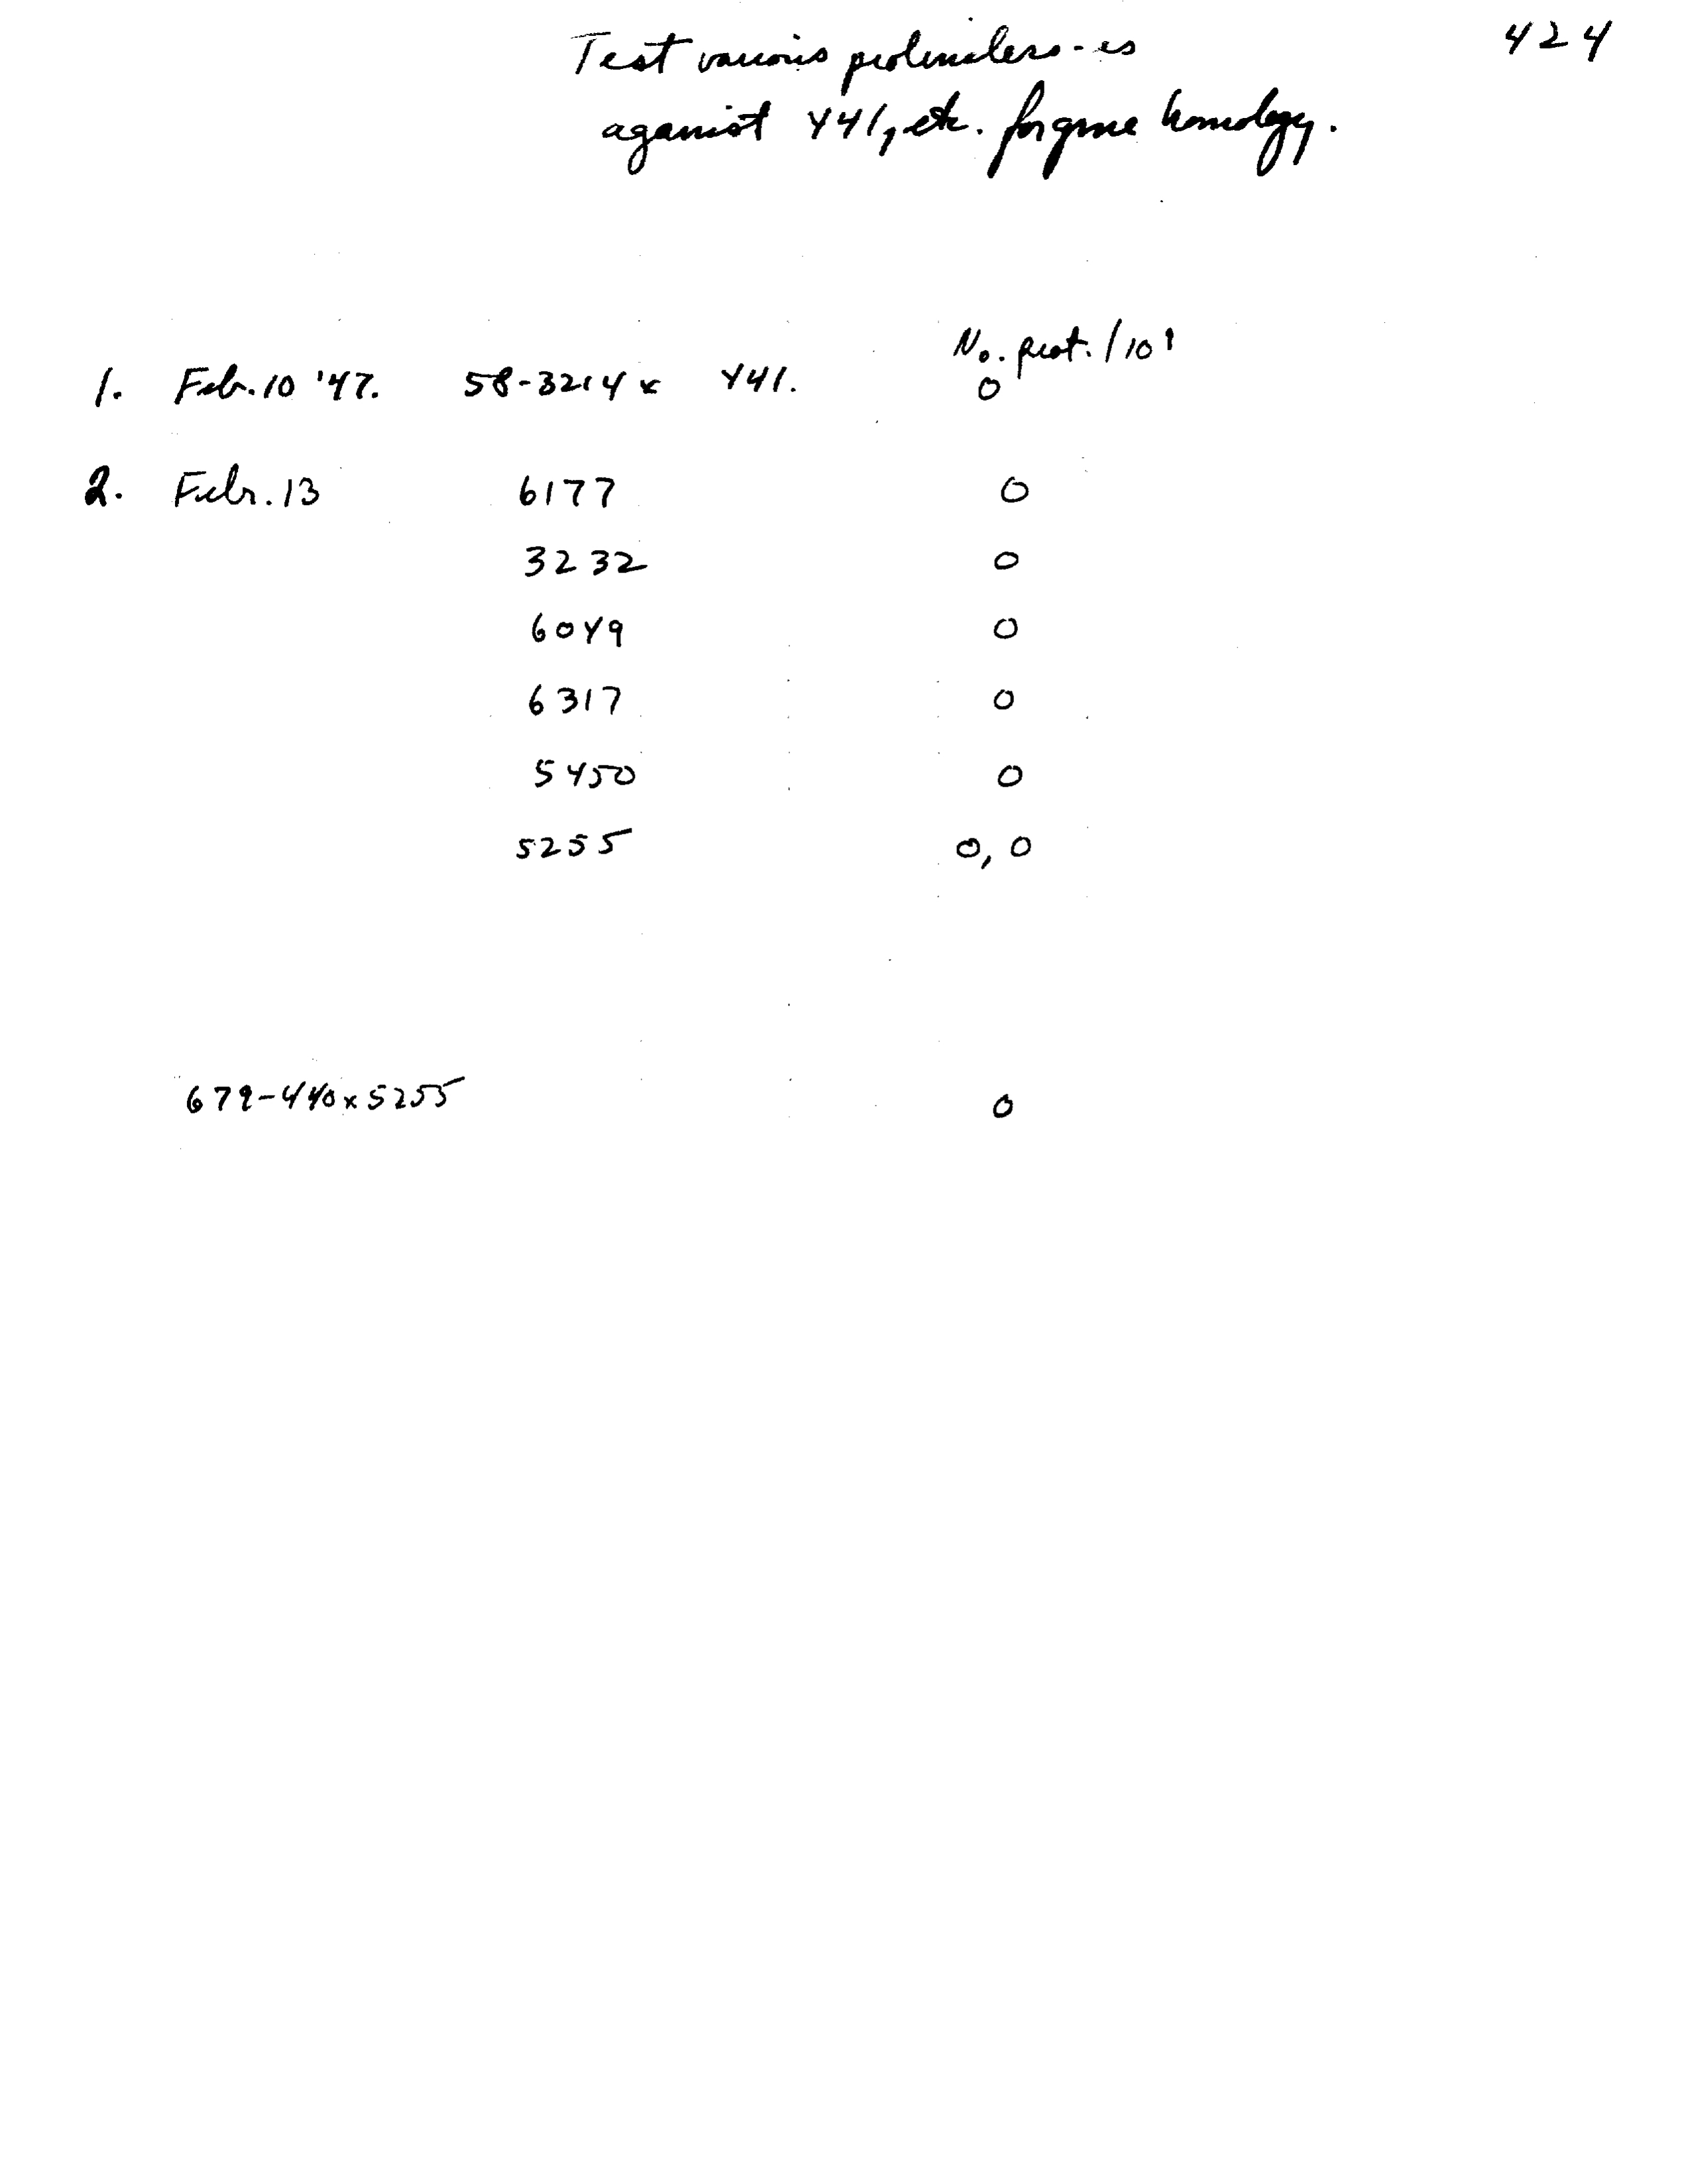 424
Test various prolineless-es
against Y41, etc. for gene homology.
No. prot. / 10⁹
1. Feb. 10 '47. 58-3214 x Y41. 0
2. Febr. 13 6177 0
3232 0
6049 0
6317 0
5450 0
5255 0, 0
679-440 x 5255 0